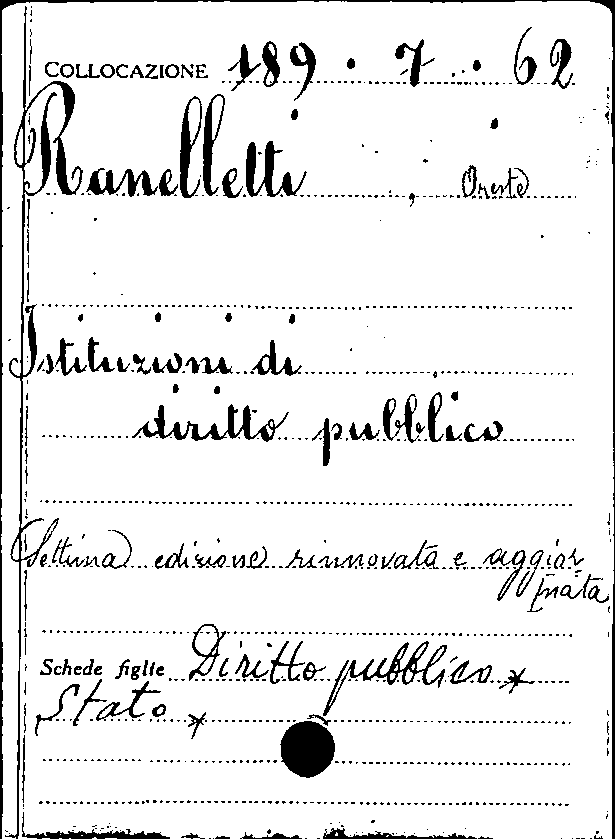 COLLOCAZIONE 189 . 7 . 62
Ranelletti , Oreste
Istituzioni di
diritto pubblico
Settima edizione rinnovata e aggior-
nata
Schede figlie Diritto pubblico *
Stato *